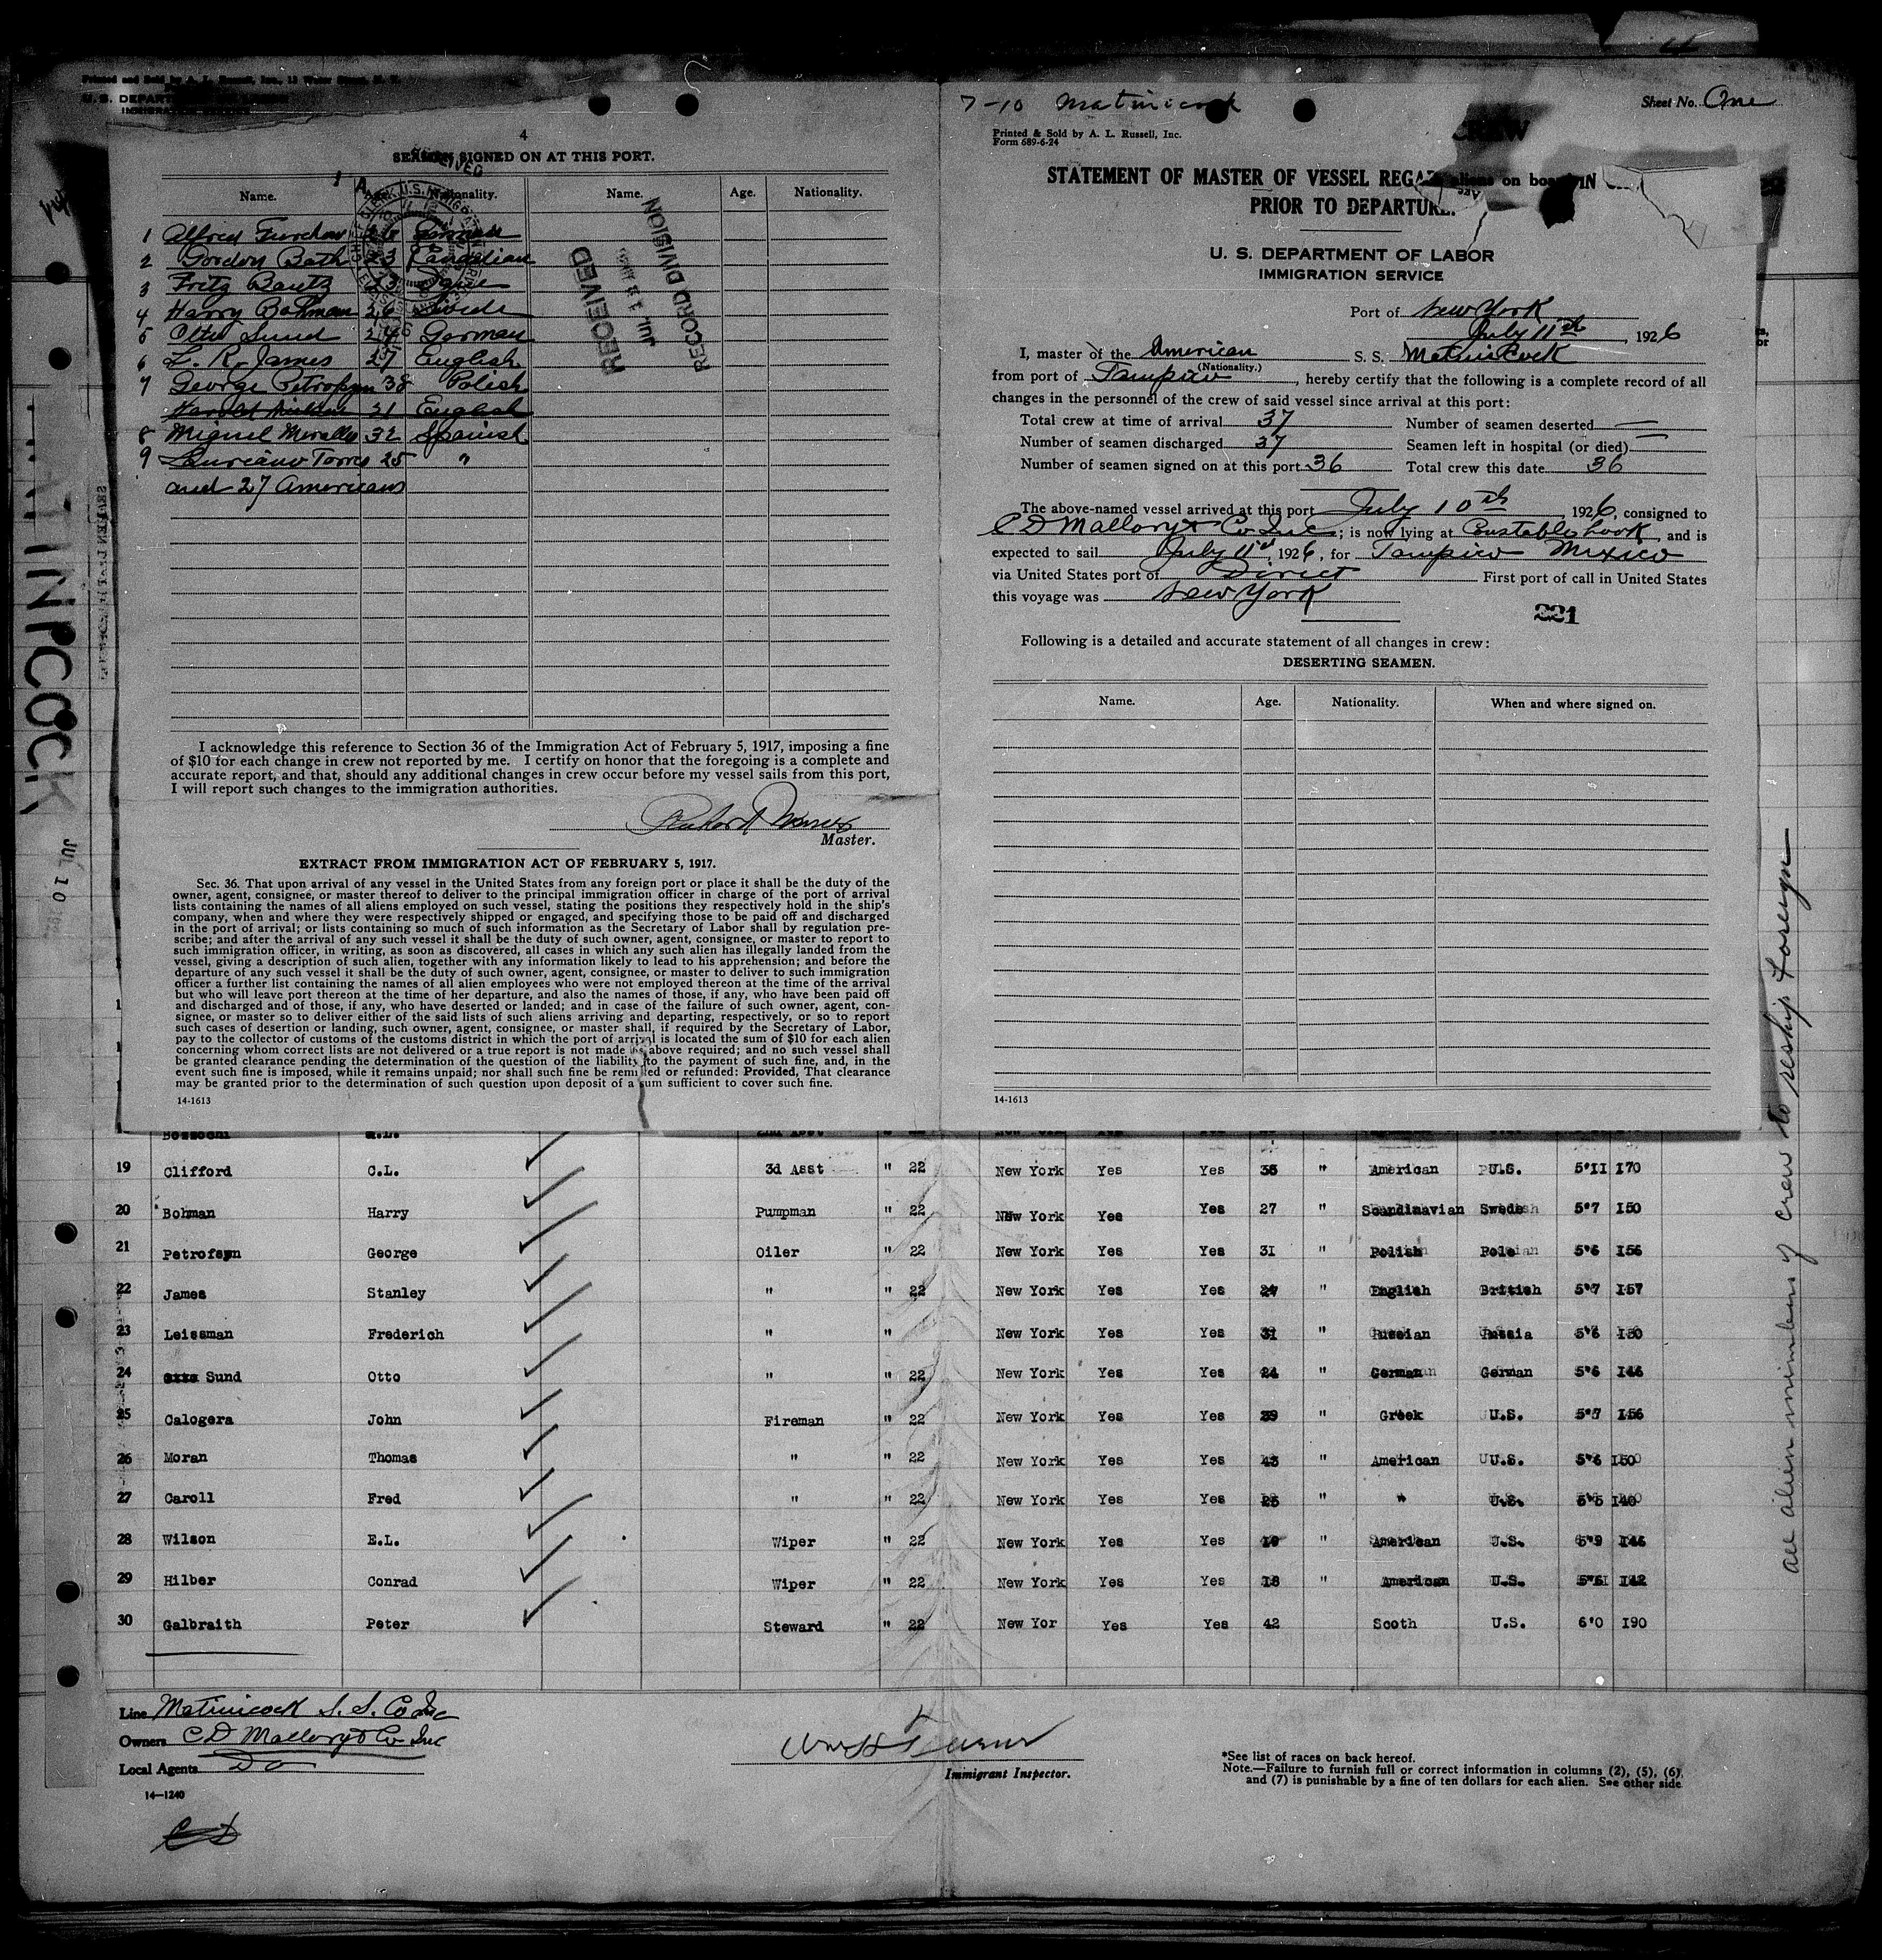 U. S. DEPAR
4
SEAMEN SIGNED ON AT THIS PORT.
Name. Age. Nationality. Name. Age. Nationality.
1 Alfred 26 German
2 Gordon Bath 23 Canadian
3 Fritz 23
4 Harry Bohman 26 Swede
5 Otto Sund 24 German
6 L. R. James 27 English
7 George Petrofsyn 38 Polish
Harold 21 English
8 Miguel 32 Spanish
9 Laureano Torres 25 "
and 27 Americans
RECEIVED
JUL 13 1926
RECORD DIVISION
I acknowledge this reference to Section 36 of the Immigration Act of February 5, 1917, imposing a fine
of $10 for each change in crew not reported by me. I certify on honor that the foregoing is a complete and
accurate report, and that, should any additional changes in crew occur before my vessel sails from this port,
I will report such changes to the immigration authorities.
Master.
EXTRACT FROM IMMIGRATION ACT OF FEBRUARY 5, 1917.
Sec. 36. That upon arrival of any vessel in the United States from any foreign port or place it shall be the duty of the
owner, agent, consignee, or master thereof to deliver to the principal immigration officer in charge of the port of arrival
lists containing the names of all aliens employed on such vessel, stating the positions they respectively hold in the ship's
company, when and where they were respectively shipped or engaged, and specifying those to be paid off and discharged
in the port of arrival; or lists containing so much of such information as the Secretary of Labor shall by regulation pre-
scribe; and after the arrival of any such vessel it shall be the duty of such owner, agent, consignee, or master to report to
such immigration officer, in writing, as soon as discovered, all cases in which any such alien has illegally landed from the
vessel, giving a description of such alien, together with any information likely to lead to his apprehension; and before the
departure of any such vessel it shall be the duty of such owner, agent, consignee, or master to deliver to such immigration
officer a further list containing the names of all alien employees who were not employed thereon at the time of the arrival
but who will leave port thereon at the time of her departure, and also the names of those, if any, who have been paid off
and discharged and of those, if any, who have deserted or landed; and in case of the failure of such owner, agent, con-
signee, or master so to deliver either of the said lists of such aliens arriving and departing, respectively, or so to report
such cases of desertion or landing, such owner, agent, consignee, or master shall, if required by the Secretary of Labor,
pay to the collector of customs of the customs district in which the port of arrival is located the sum of $10 for each alien
concerning whom correct lists are not delivered or a true report is not made as above required; and no such vessel shall
be granted clearance pending the determination of the question of the liability to the payment of such fine, and, in the
event such fine is imposed, while it remains unpaid; nor shall such fine be remitted or refunded: Provided, That clearance
may be granted prior to the determination of such question upon deposit of a sum sufficient to cover such fine.
14-1613
7-10 Matinicock
Sheet No. One
Printed & Sold by A. L. Russell, Inc.
Form 689-6-24
STATEMENT OF MASTER OF VESSEL REGA
PRIOR TO DEPARTURE.
U. S. DEPARTMENT OF LABOR
IMMIGRATION SERVICE
Port of New York
July 11th, 1926
I, master of the American S. S. Matinicock
(Nationality.)
from port of Tampico, hereby certify that the following is a complete record of all
changes in the personnel of the crew of said vessel since arrival at this port:
Total crew at time of arrival 37 Number of seamen deserted —
Number of seamen discharged 37 Seamen left in hospital (or died) —
Number of seamen signed on at this port 36 Total crew this date 36
The above-named vessel arrived at this port July 10th 1926, consigned to
C D Mallory & Co Inc; is now lying at Constable hook, and is
expected to sail July 11th, 1926, for Tampico Mexico
via United States port of Direct First port of call in United States
this voyage was New York
221
Following is a detailed and accurate statement of all changes in crew:
DESERTING SEAMEN.
Name. Age. Nationality. When and where signed on.
14-1613
INPCOCK
JUL 10
all alien members of crew to reship foreign
19 Clifford C.L. 3d Asst " 22 New York Yes Yes 38 " American U.S. 5'11 170
20 Bohman Harry Pumpman " 22 New York Yes Yes 27 " Scandinavian Swede 5'7 150
21 Petrofsyn George Oiler " 22 New York Yes Yes 31 " Polish Pole 5'6 156
22 James Stanley " " 22 New York Yes Yes 27 " English British 5'7 157
23 Leissman Frederich " " New York Yes Yes 31 " Russian Russia 5'6 150
24 Sund Otto " " 22 New York Yes Yes 24 " German German 5'6 146
25 Calogera John Fireman " 22 New York Yes Yes 39 " Greek U.S. 5'7 156
26 Moran Thomas " " 22 New York Yes Yes 43 " American U.S. 5'6 150
27 Caroll Fred " " 22 New York Yes Yes 25 " " U.S. 5'5 140
28 Wilson E.L. Wiper " 22 New York Yes Yes 19 " American U.S. 5'9 146
29 Hilber Conrad Wiper " 22 New York Yes Yes 18 " American U.S. 142
30 Galbraith Peter Steward " 22 New Yor Yes Yes 42 Scoth U.S. 6'0 190
Line Matinicock S. S. Co Inc
Owners C D Mallory & Co Inc
Local Agents Do
14—1240
Immigrant Inspector.
*See list of races on back hereof.
Note.—Failure to furnish full or correct information in columns (2), (5), (6),
and (7) is punishable by a fine of ten dollars for each alien. See other side